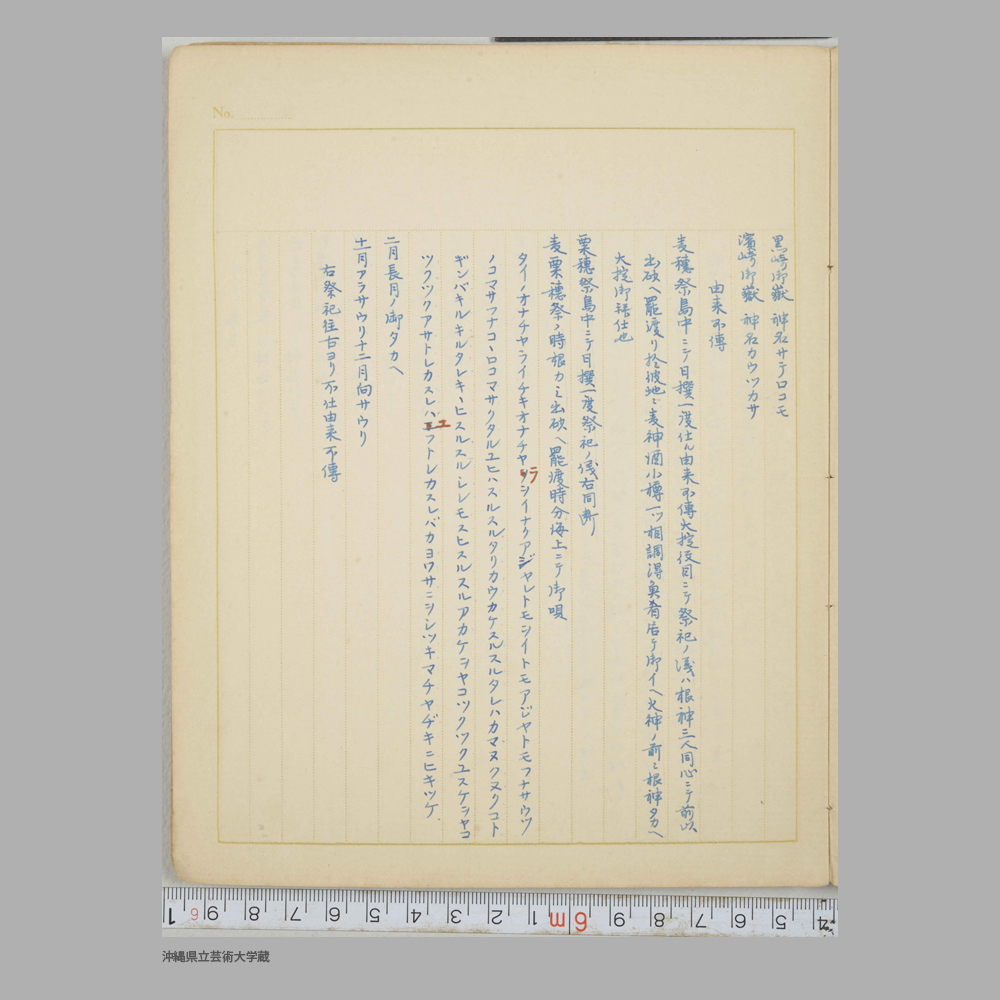 No.
黒崎御嶽 神名サテロコモ
濱崎御嶽 神名カウツカサ
由来不傳
麦穂祭島中ニテ日撰一度仕ル由来不傳大掟役目ニテ祭祀ノ儀ハ根神三人同心ニテ前以
出砍ヘ罷渡り於彼地ニ麦神酒小樽一ツ相調得魚肴店テ御イヘ火神ノ前ニ根神タカヘ
大掟御拝仕也
粟穂祭島中ニテ日撰一度祭祀ノ儀右同断
麦粟穂祭ノ時根カミ出砍ヘ罷渡時分海上ニテ御唄
タイノオナチヤライチキオナチヤツラシイナリアジヤレトモシイトモアジヤトモフナサウツ
ノコマサフナコヽロコマサクタルユヒハスルスルタリカウカケスルスルタレハカマヌクヌクコト
ギンバキルキルタレキヽヒスルスルレレモスヒスルスルアカケシヤコツクツクユスケシヤコ
ツクツクアサトレカスレハエエフトレカスレバカヨワサニシレツキマチヤヂキニヒキツケ
二月長月ノ御タカヘ
十一月アラサウリ十二月向サウリ
右祭祀往古ヨリ不仕由来不傳
1 6 9 8 7 6 5 4 3 2 1 6m 9 8 7 6 5 4
沖縄県立芸術大学蔵